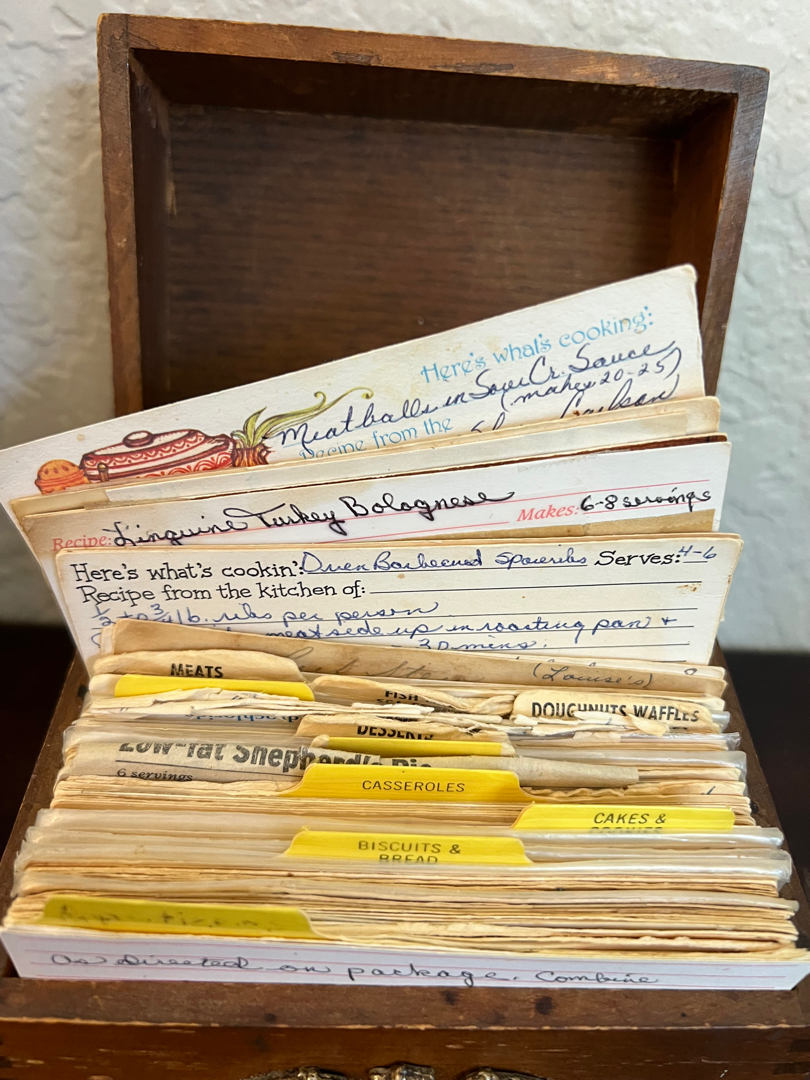 Here's what's cooking:
Meatballs in Sour Cr. Sauce
(makes 20-25)
Recipe from the Carlson
Recipe: Linguine Turkey Bolognese Makes: 6-8 servings
Here's what's cookin': Oven Barbecued Spareribs Serves: 4-6
Recipe from the kitchen of:
1/2 to 3/4 lb. ribs per person
meat side up in roasting pan &
30 mins.
(Louise's)
MEATS
FISH
DOUGHNUTS WAFFLES
DESSERTS
Low-fat Shepherd's Pie
6 servings
CASSEROLES
CAKES &
COOKIES
BISCUITS &
BREAD
Appetizers
as directed on package. Combine